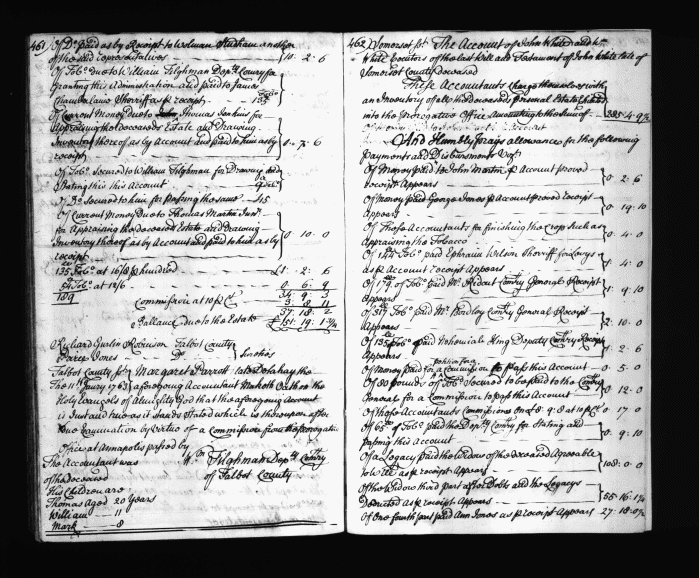 461) Of Do paid as by Receipt to Wolman
of the said representatives 10. 2. 6
Of Tobo due to William Tilghman Depty Comry for
granting this Administration and paid to Jacob
Chamberlaine Sherriff as pr receipt
Of Current Money due to Thomas Jenkins for
Appraising the deceaseds Estate and Drawing
Inventory thereof as by Account and paid to him as by
receipt 0. 7. 6
Of Tobo Secured to William Tilghman for Drawing and
Stating this this Account
Of Do Secured to him for passing the same 45
Of Current Money due to Thomas Martin Junr
for Appraising the deceased Estate and drawing
Inventory thereof as by Account and paid to him as by
receipt 0 10. 0
135 Tobo at 16/8 pr hundred £1. 2. 6
54 Tobo at 12/6 0. 6. 9
189 34. 9. 3
Commission at 10 pr Ct 3. 8. 11
37. 18. 2
Ballance due to the Estate £151. 19. 1 3/4
Richard Gurlin Robinson Talbot County
Peirce Jones Do Sureties
Talbot County Sst Margaret Parrot late Delahay the
The 11th Janry 1763 aforegoing Accountant Maketh Oath on the
Holy Evangels of Almighty God that the aforegoing Account
is Just and true as it stands Stated which is thereupon after
due Examination by virtue of a Commission from the Prerogative
Office at Annapolis passed by
The Accountant was Wm Tilghman Depty Comry
of the deceased of Talbot County
His Children are
Thomas Aged 20 Years
William 11
Mark 8
462) Somerset Sst The Account of John White and Wm
White Executors of the last Will and Testament of John White late of
Somerset County deceased
These Accountants Charge themselves with
an Inventory of all the deceased personal Estate
into the Prerogative Office Amounting to the Sum of 385. 4. 9 1/2
And Humbly Prays allowance for the following
Payments and Disbursements Vizt
Of Money paid to John Martin pr Account proved
receipt Appears 0. 2. 6
Of Money paid George Jones pr Account proved receipt
Appears 0. 19. 10
Of These Accountants for finishing the Crop Such as
Appraising the Tobacco 0. 4. 0
Of 144 Tobo paid Ephraim Wilson Sherriff for Levys
as pr Account receipt Appears 1. 4. 0
Of 179 of Tobo paid Mr Ridout Comry General Receipt
Appears 1. 9. 10
Of 317 Tobo paid Mr Bordley Comry General Receipt
Appears 2. 10. 0
Of 135 Tobo paid Nehemiah King Deputy Comry Receipt
Appears 1. 2. 6
Of Money paid for a Commission to pass this Account 0. 5. 0
Of 80 pounds of Tobo Secured to be paid to the Comry
General for a Commission to pass this Account 0. 12. 0
Of these Accountants Commissions On £8. 9. 8 at 10 pr Ct 0 17. 0
Of Tobo paid the Depty Comry for Stating and
passing this Account 0. 9. 10
Of a Legacy paid the Widow of the deceased Agreeable
to Will as pr receipt Appears 108. 0. 0
Of the Widow third part after Debts and the Legacys
Deducted as pr receipt Appears 55. 16. 1 1/4
Of One fourth part paid Ann Jones as pr receipt Appears 27. 18. 0 1/2